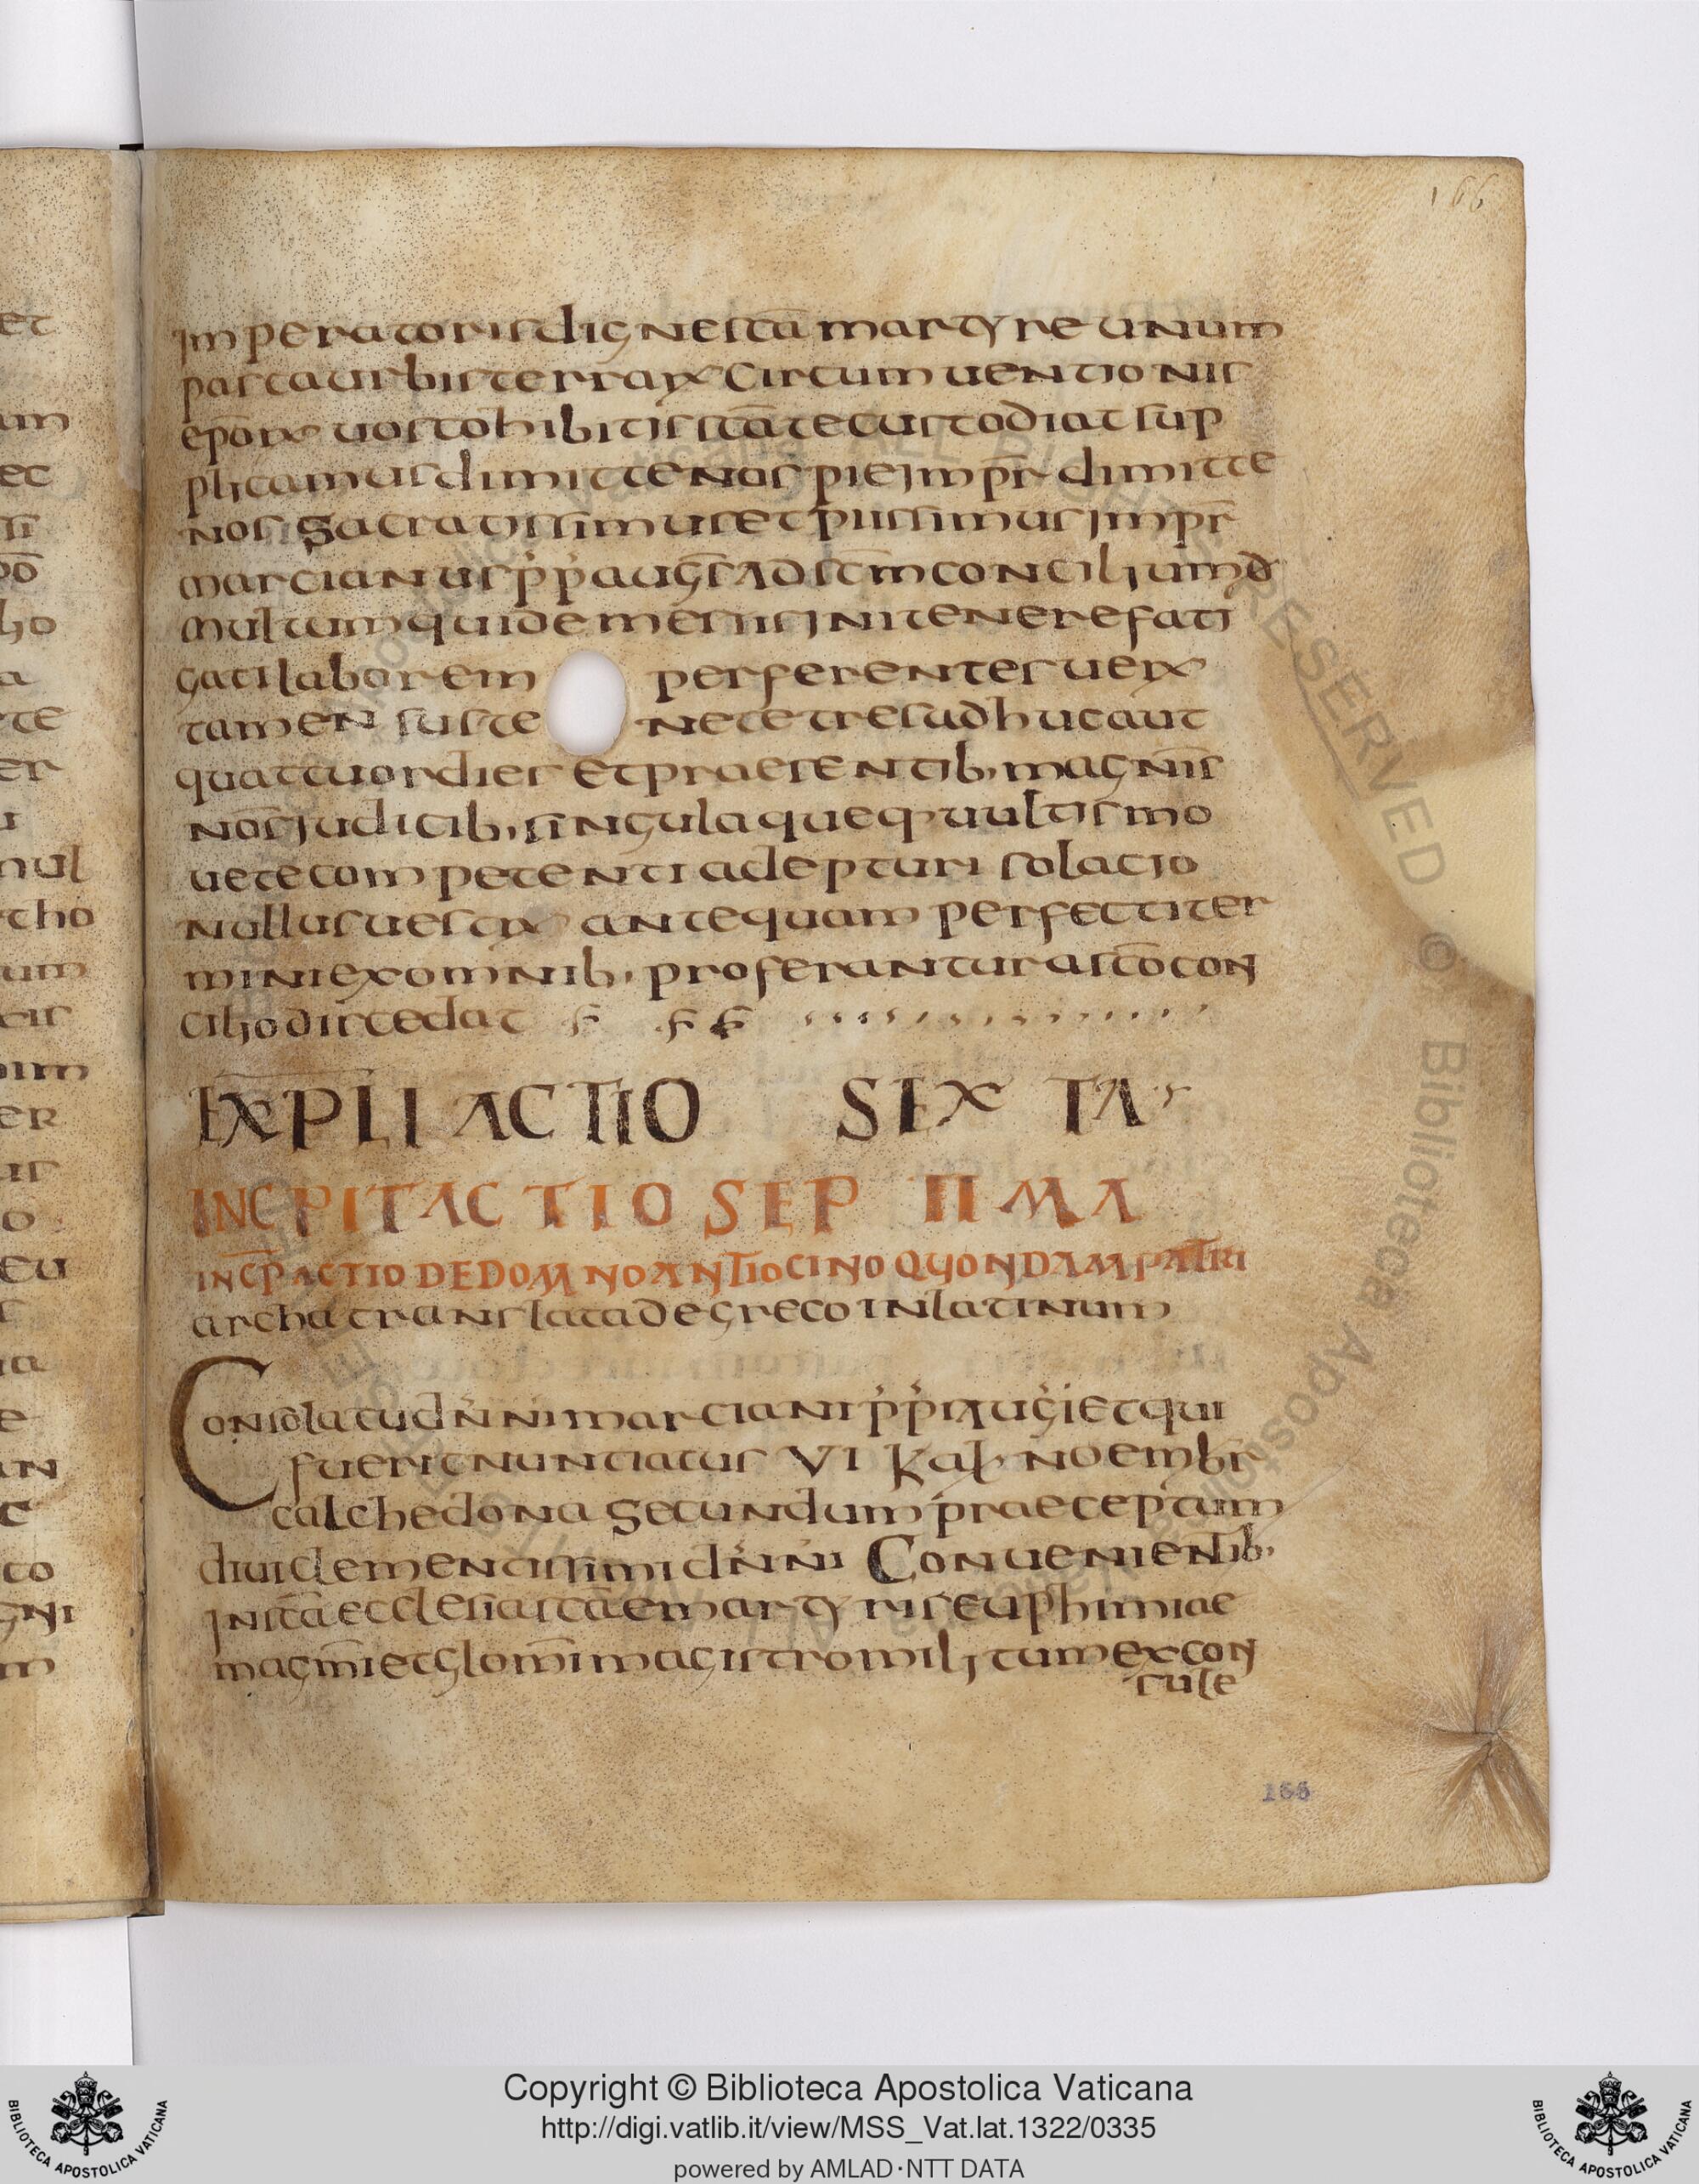 166
imperatoris dignes c̄a martyre unum
parca urbis terrarx circumuentionis
ep̄orx uos cohibitis sc̄ā te custodiat sup
plicamus dimitte nos pie imp̄r dimitte
nos sacratissimus et piissimus imp̄r
marcianus p̄p̄ aug̅s ad sc̄m concilium d̄
multum quidem essis initenere fati
gati laborem perferentes uerx
tamen suste nete tres udhuc aut
quattuor dies et praesentib, magnis
nōs iudicib, singula queq uultis mo
uete competenti adepturi solacio
nullus uestrx antequam perfecti ter
mini ex omnib, proferantur a sc̄o con
cilio discedat
EXPLI ACTIO SEXTA
INC̄PIT ACTIO SEPTIMA
INC̄P ACTIO DE DOMNO ANTIOCINO QUONDAM PATRI
archa translata de greco in latinum
Consolatu d̄n̄i n̄i marciani p̄p̄i aug̅i et qui
fuerit nuntiatus VI kal noembr̄
calchedona secundum praeceptum
diui clementissimi d̄n̄i n̄i Conuenientib,
in sc̄a ecclesia sc̄ae martyris euphimiae
magm̄i et glom̄i magistro militum ex con
sule
166
Copyright © Biblioteca Apostolica Vaticana
http://digi.vatlib.it/view/MSS_Vat.lat.1322/0335
powered by AMLAD·NTT DATA
BIBLIOTECA APOSTOLICA VATICANA
BIBLIOTECA APOSTOLICA VATICANA